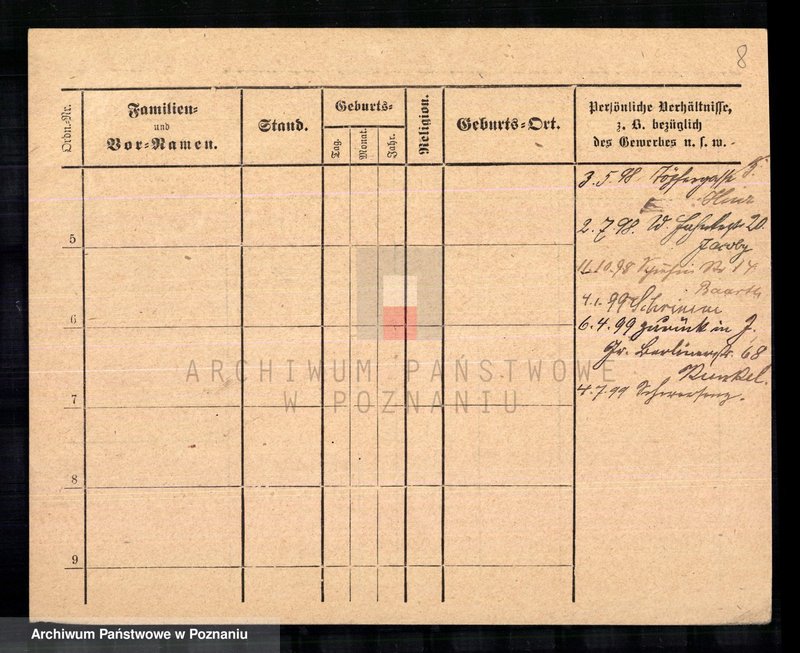 8
Ordn.-Nr.
Familien-
und
Vor-Namen.
Stand.
Geburts-
Tag.
Monat.
Jahr.
Religion.
Geburts-Ort.
Persönliche Verhältnisse,
z. B. bezüglich
des Gewerbes u. s. w. -
3.5.98. Töpfergasse
2.7.98. 20.
Jacoby
11.10.98 Nr 14
Baarth
4.1.99 Schrimm
6.4.99 zurück in J.
Gr. Berlinerstr. 68
Kunkel.
4.7.99 Schwersenz.
5
6
7
8
9
ARCHIWUM PAŃSTWOWE
W POZNANIU
Archiwum Państwowe w Poznaniu